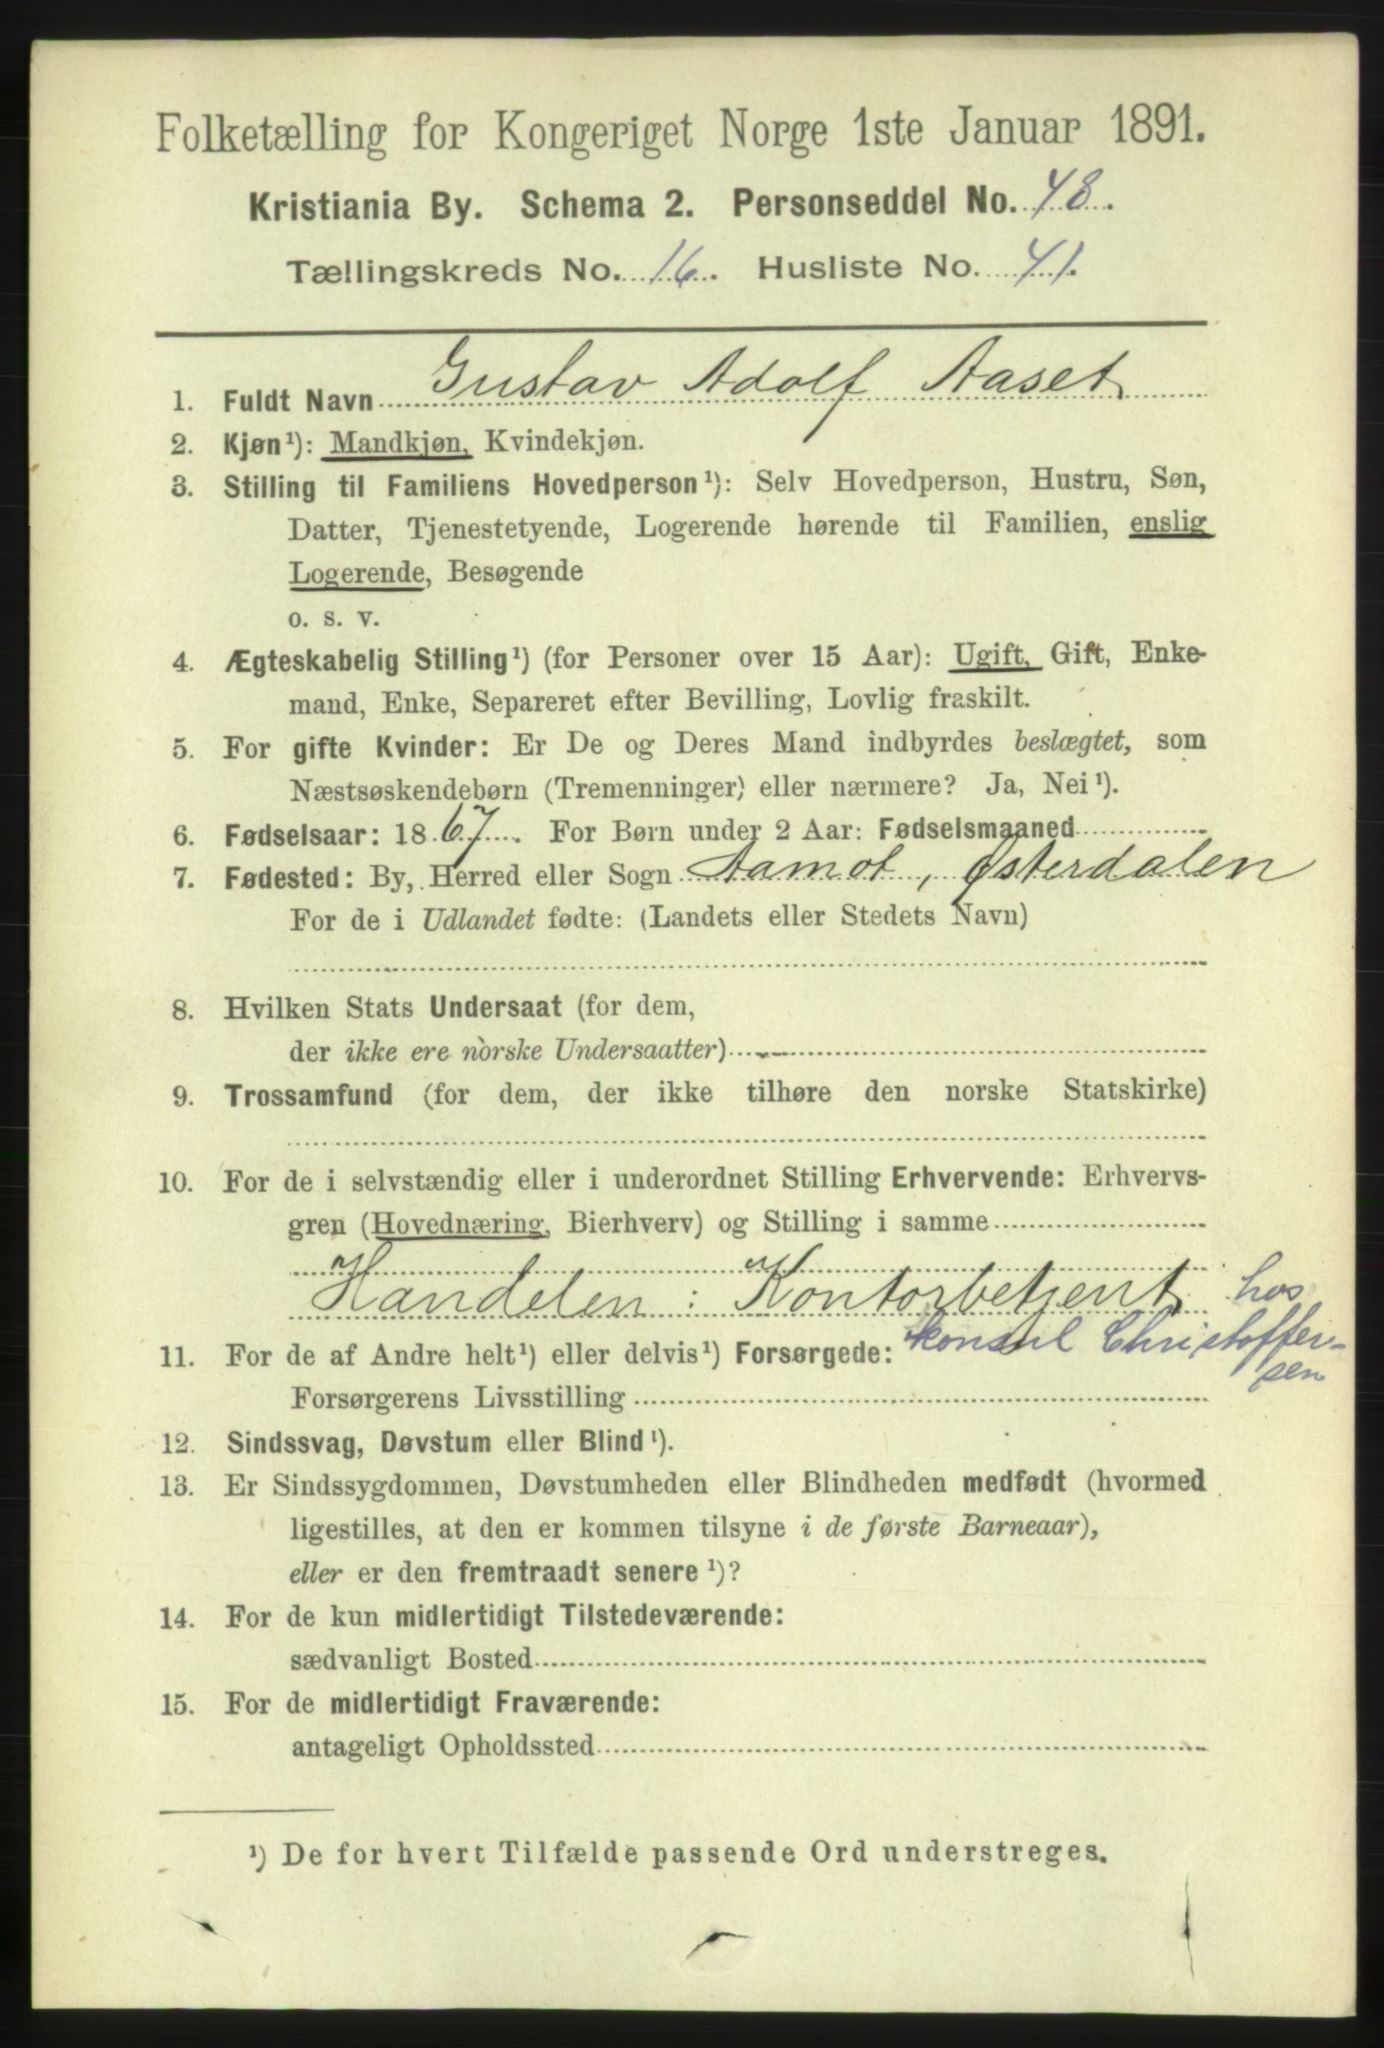 Folketælling for Kongeriget Norge 1ste Januar 1891.
Kristiania By. Schema 2. Personseddel No. 48.
Tællingskreds No. 16. Husliste No. 41.
1. Fuldt Navn Gustav Adolf Aaset
2. Kjøn¹): Mandkjøn, Kvindekjøn.
3. Stilling til Familiens Hovedperson¹): Selv Hovedperson, Hustru, Søn,
Datter, Tjenestetyende, Logerende hørende til Familien, enslig
Logerende, Besøgende
o. s. v.
4. Ægteskabelig Stilling¹) (for Personer over 15 Aar): Ugift, Gift, Enke-
mand, Enke, Separeret efter Bevilling, Lovlig fraskilt.
5. For gifte Kvinder: Er De og Deres Mand indbyrdes beslægtet, som
Næstsøskendebørn (Tremenninger) eller nærmere? Ja, Nei¹).
6. Fødselsaar: 1867. For Børn under 2 Aar: Fødselsmaaned
7. Fødested: By, Herred eller Sogn Aamot, Østerdalen
For de i Udlandet fødte: (Landets eller Stedets Navn)
8. Hvilken Stats Undersaat (for dem,
der ikke ere norske Undersaatter)
9. Trossamfund (for dem, der ikke tilhøre den norske Statskirke)
10. For de i selvstændig eller i underordnet Stilling Erhvervende: Erhvervs-
gren (Hovednæring, Bierhverv) og Stilling i samme
Handelen: Kontorbetjent hos
konsul Christoffer-
sen
11. For de af Andre helt¹) eller delvis¹) Forsørgede:
Forsørgerens Livsstilling
12. Sindssvag, Døvstum eller Blind¹).
13. Er Sindssygdommen, Døvstumheden eller Blindheden medfødt (hvormed
ligestilles, at den er kommen tilsyne i de første Barneaar),
eller er den fremtraadt senere¹)?
14. For de kun midlertidigt Tilstedeværende:
sædvanligt Bosted
15. For de midlertidigt Fraværende:
antageligt Opholdssted
¹) De for hvert Tilfælde passende Ord understreges.